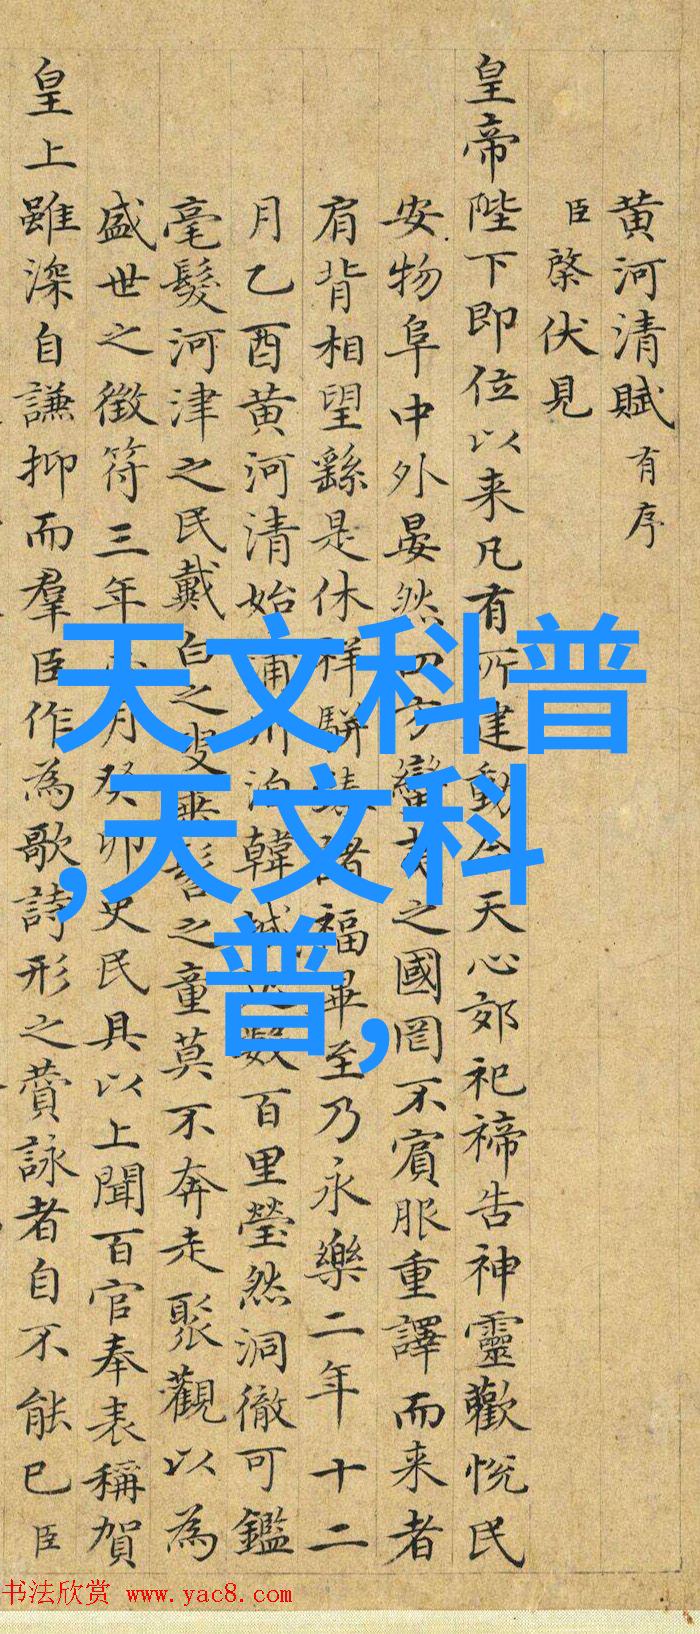 黄河清賦有序
臣棨伏見
皇帝陛下即位以来凡有所建動合天心郊祀禘告神靈歡悦民
安物阜中外晏然四方蠻夷之國罔不賓服重譯而来者
肩背相望繇是休祥駢臻諸福畢至乃永樂二年十二
月乙酉黄河清始蒲州泊韓城數百里瑩然洞徹可鑑
毫髮河津之民戴白之叟垂髫之童莫不奔走聚觀以為
盛世之徵符三年月癸卯史民具以上聞百官奉表稱賀
皇上雖深自謙抑而羣臣作為歌詩形之賛詠者自不能已臣
天文科普
,天文科
普,
书法欣赏 www.yac8.com